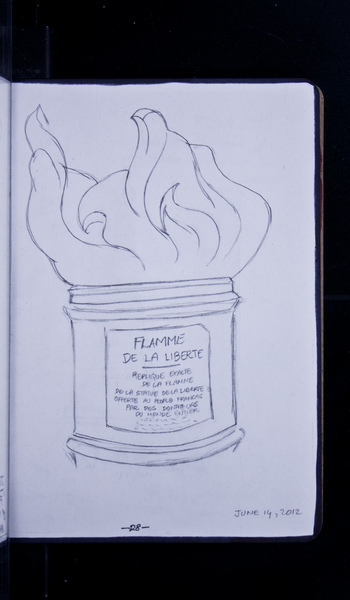 FLAMME
DE LA LIBERTE
REPLIQUE EXACTE
DE LA FLAMME
DE LA STATUE DE LA LIBERTE
OFFERTE AU PEUPLE FRANCAIS
PAR DES DONATEURS
DU MONDE ENTIER
JUNE 14, 2012
-28-